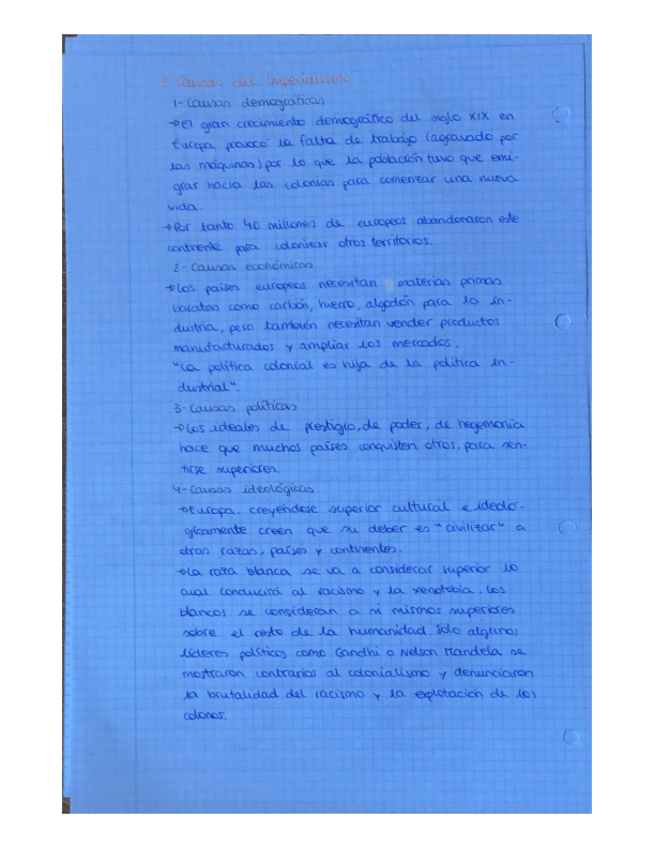 1. Causas del Imperialismo
1- Causas demográficas
→El gran crecimiento demográfico del siglo XIX en
Europa provocó la falta de trabajo (agravado por
las máquinas) por lo que la población tuvo que emi-
grar hacia las colonias para comenzar una nueva
vida.
→Por tanto 40 millones de europeos abandonaron este
continente para colonizar otros territorios.
2- Causas económicas
→Los países europeos necesitan materias primas
baratas como carbón, hierro, algodón para la in-
dustria, pero también necesitan vender productos
manufacturados y ampliar los mercados.
"La política colonial es hija de la política in-
dustrial".
3- Causas políticas
→Los ideales de prestigio, de poder, de hegemonía
hace que muchos países conquisten otros, para sen-
tirse superiores.
4- Causas ideológicas
→Europa, creyéndose superior cultural e ideoló-
gicamente creen que su deber es "civilizar" a
otras razas, países y continentes.
→La raza blanca se va a considerar superior lo
cual conducirá al racismo y la xenofobia. Los
blancos se consideran a si mismos superiores
sobre el resto de la humanidad. Solo algunos
líderes políticos como Gandhi o Nelson Mandela se
mostraron contrarios al colonialismo y denunciaron
la brutalidad del racismo y la explotación de los
colonos.